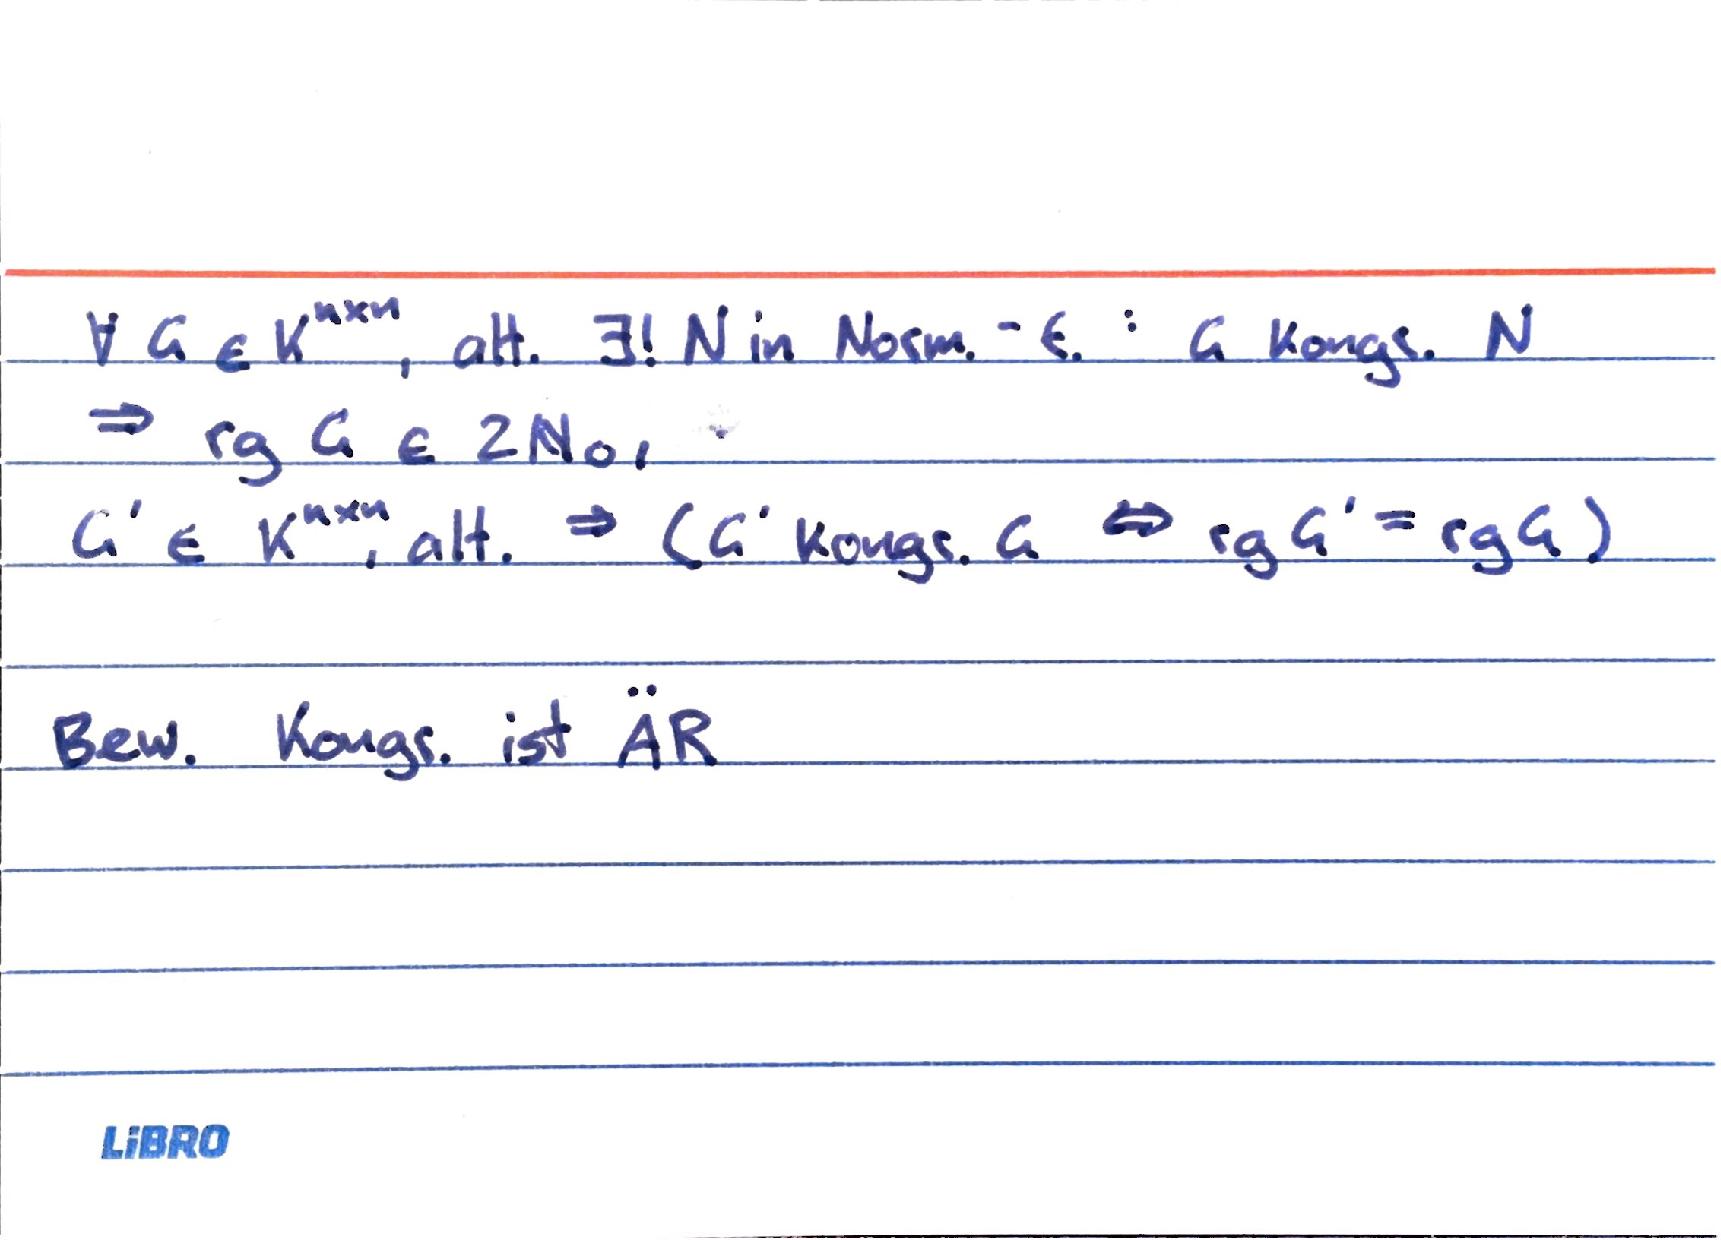 ∀ G ∈ K^{n×n}, alt. ∃! N in Norm.-F. : G kongr. N
⇒ rg G ∈ 2ℕ₀,
G' ∈ K^{n×n}, alt. ⇒ (G' kongr. G ⇔ rg G' = rg G)
Bew. Kongr. ist ÄR
LiBRO